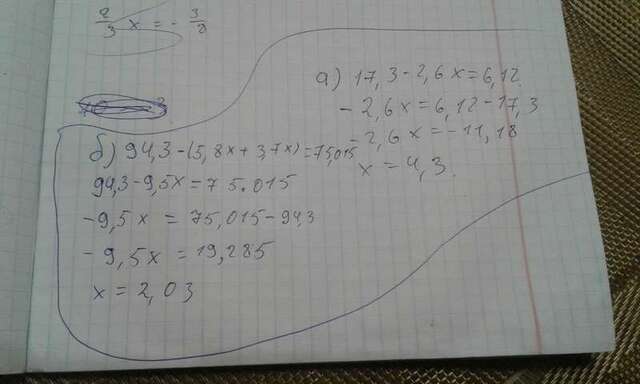 2/3 x = - 3/8
а) 17,3-2,6x=6,12
- 2,6x=6,12-17,3
-2,6x=-11,18
x=4,3.
б) 94,3-(5,8x+3,7x)=75,015
94,3-9,5x=75.015
-9,5x = 75,015-94,3
-9,5x = 19,285
x=2,03